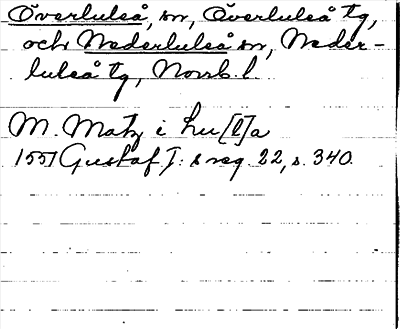 Överluleå, sn, Överluleå tg,
och Nederluleå sn, Neder-
luleå tg, Norrb. l.
M. Matz i Lu[l]a
1557 Gustaf I:s reg. 22, s. 340.